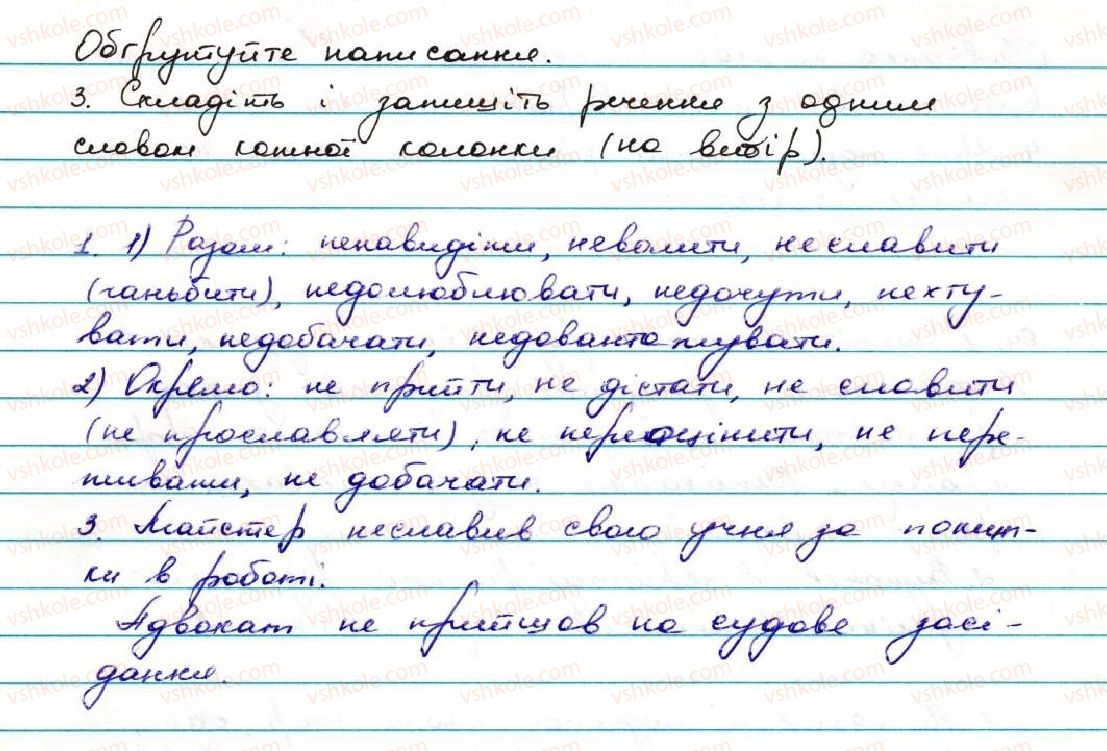 Обґрунтуйте написання.
3. Складіть і запишіть речення з одним
словом кожної колонки (на вибір).
1. 1) Разом: ненавидіти, неволити, неславити
(ганьбити), недолюблювати, недочути, нехту-
вати, недобачати, недовантажувати.
2) Окремо: не прийти, не дістати, не славити
(не прославляти), не переоцінити, не пере-
живати, не добачати.
3. Майстер неславив свого учня за помил-
ки в роботі.
Адвокат не прийшов на судове засі-
дання.